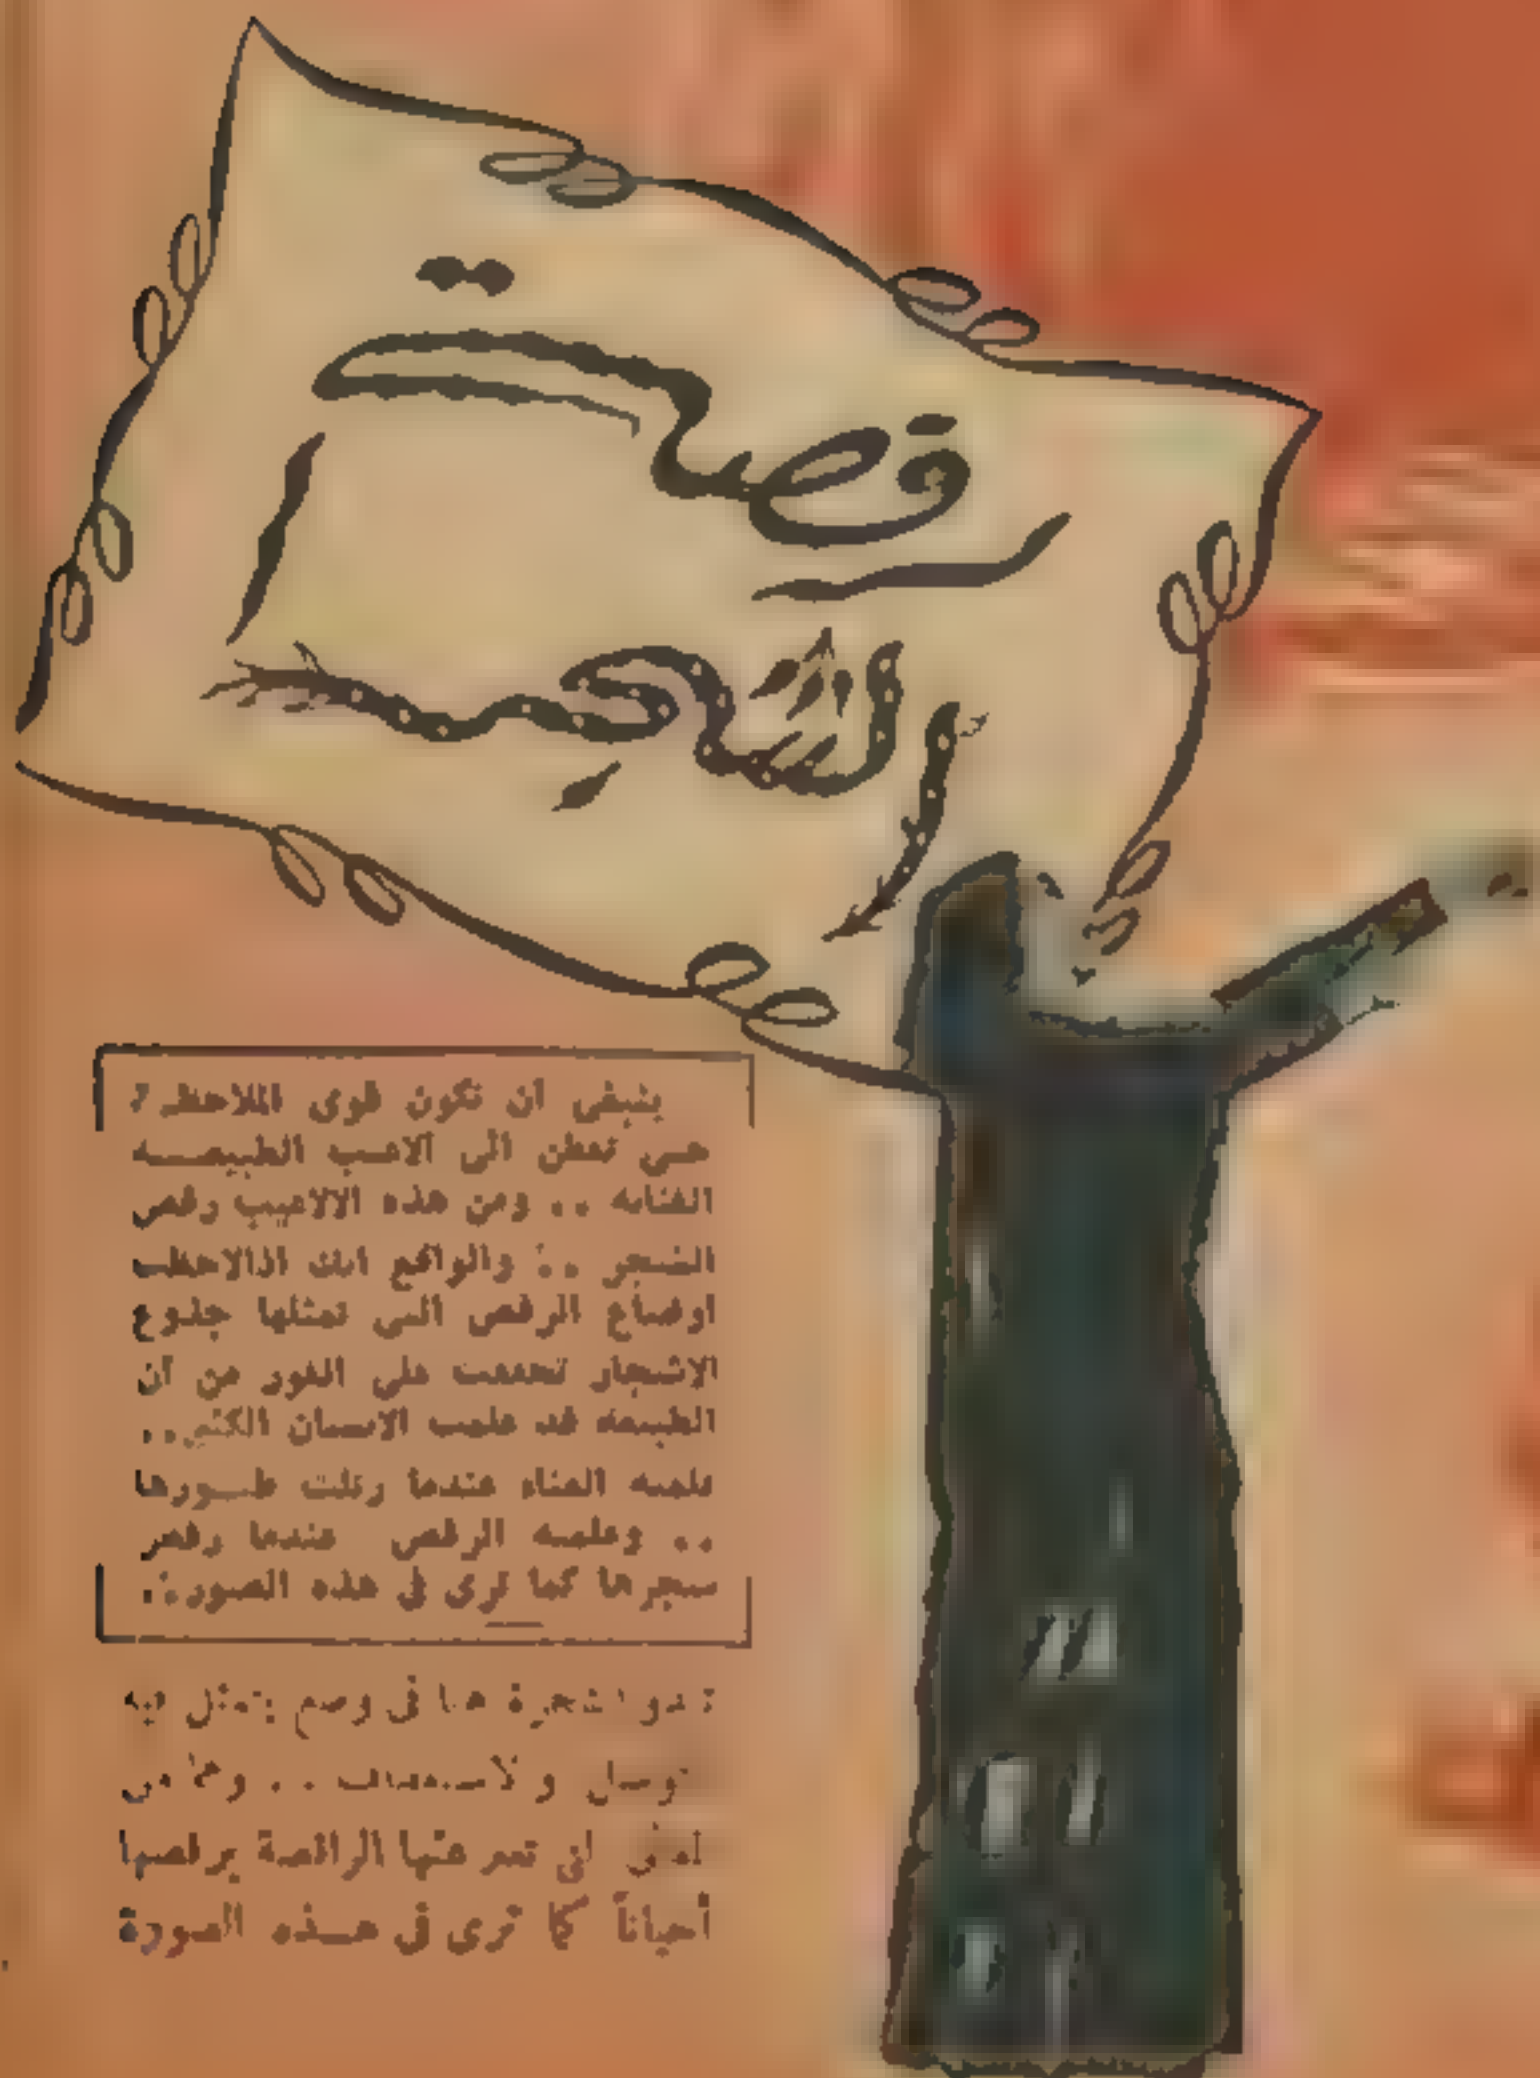 رقصة
الشجر
ينبغى ان تكون قوى الملاحظة
حتى تفطن الى ألاعيب الطبيعة
الفنانة .. ومن هذه الالاعيب رقص
الشجر .. والواقع انك اذا لاحظت
اوضاع الرقص التى تمثلها جذوع
الاشجار تحققت على الفور من أن
الطبيعة قد علمت الانسان الكثير ..
علمته الغناء عندما رتلت طيورها
.. وعلمته الرقص عندما رقص
شجرها كما ترى فى هذه الصور ..
تبدو الشجرة هنا فى وضع يتمثل فيه
التوسل والاستعطاف .. وهى
ان تعبر عنها الراقصة برقصها
أحياناً كما ترى فى هذه الصورة